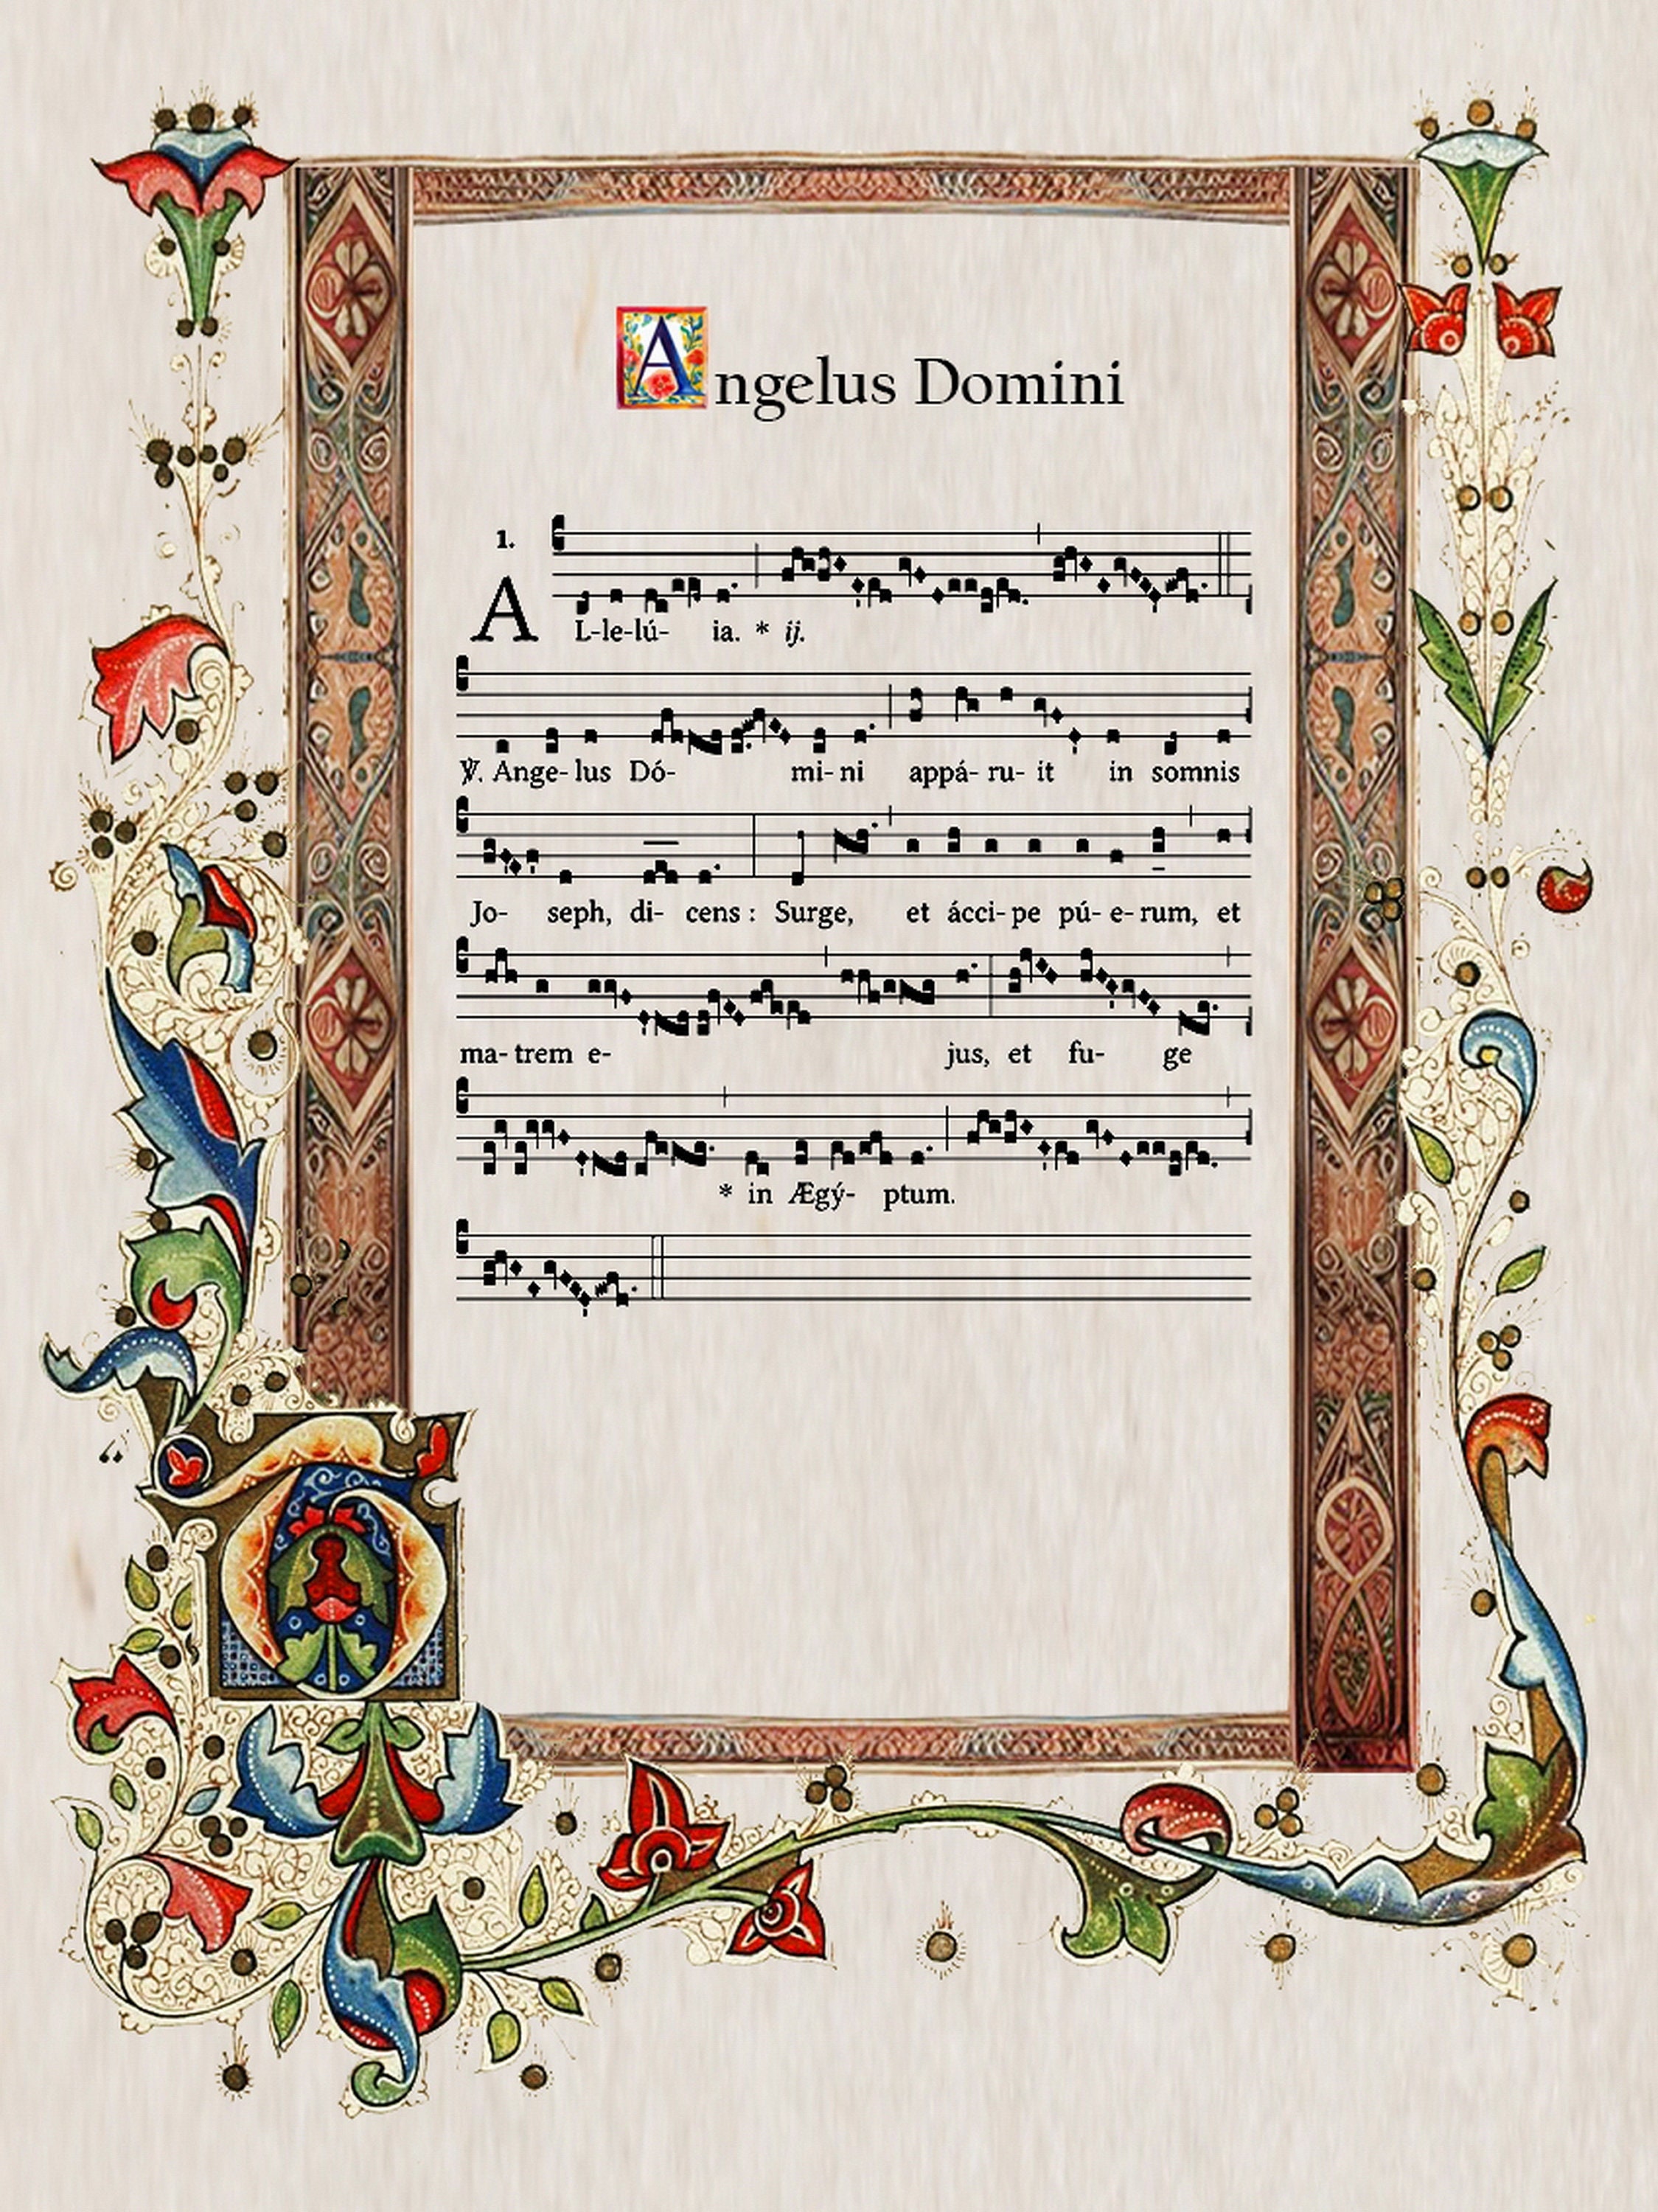 Angelus Domini
1.
AL-le-lú- ia. * ij.
℣. Ange- lus Dó- mi- ni appá- ru- it in somnis
Jo- seph, di- cens : Surge, et ácci- pe pú- e- rum, et
ma- trem e- jus, et fu- ge
* in Ægý- ptum.